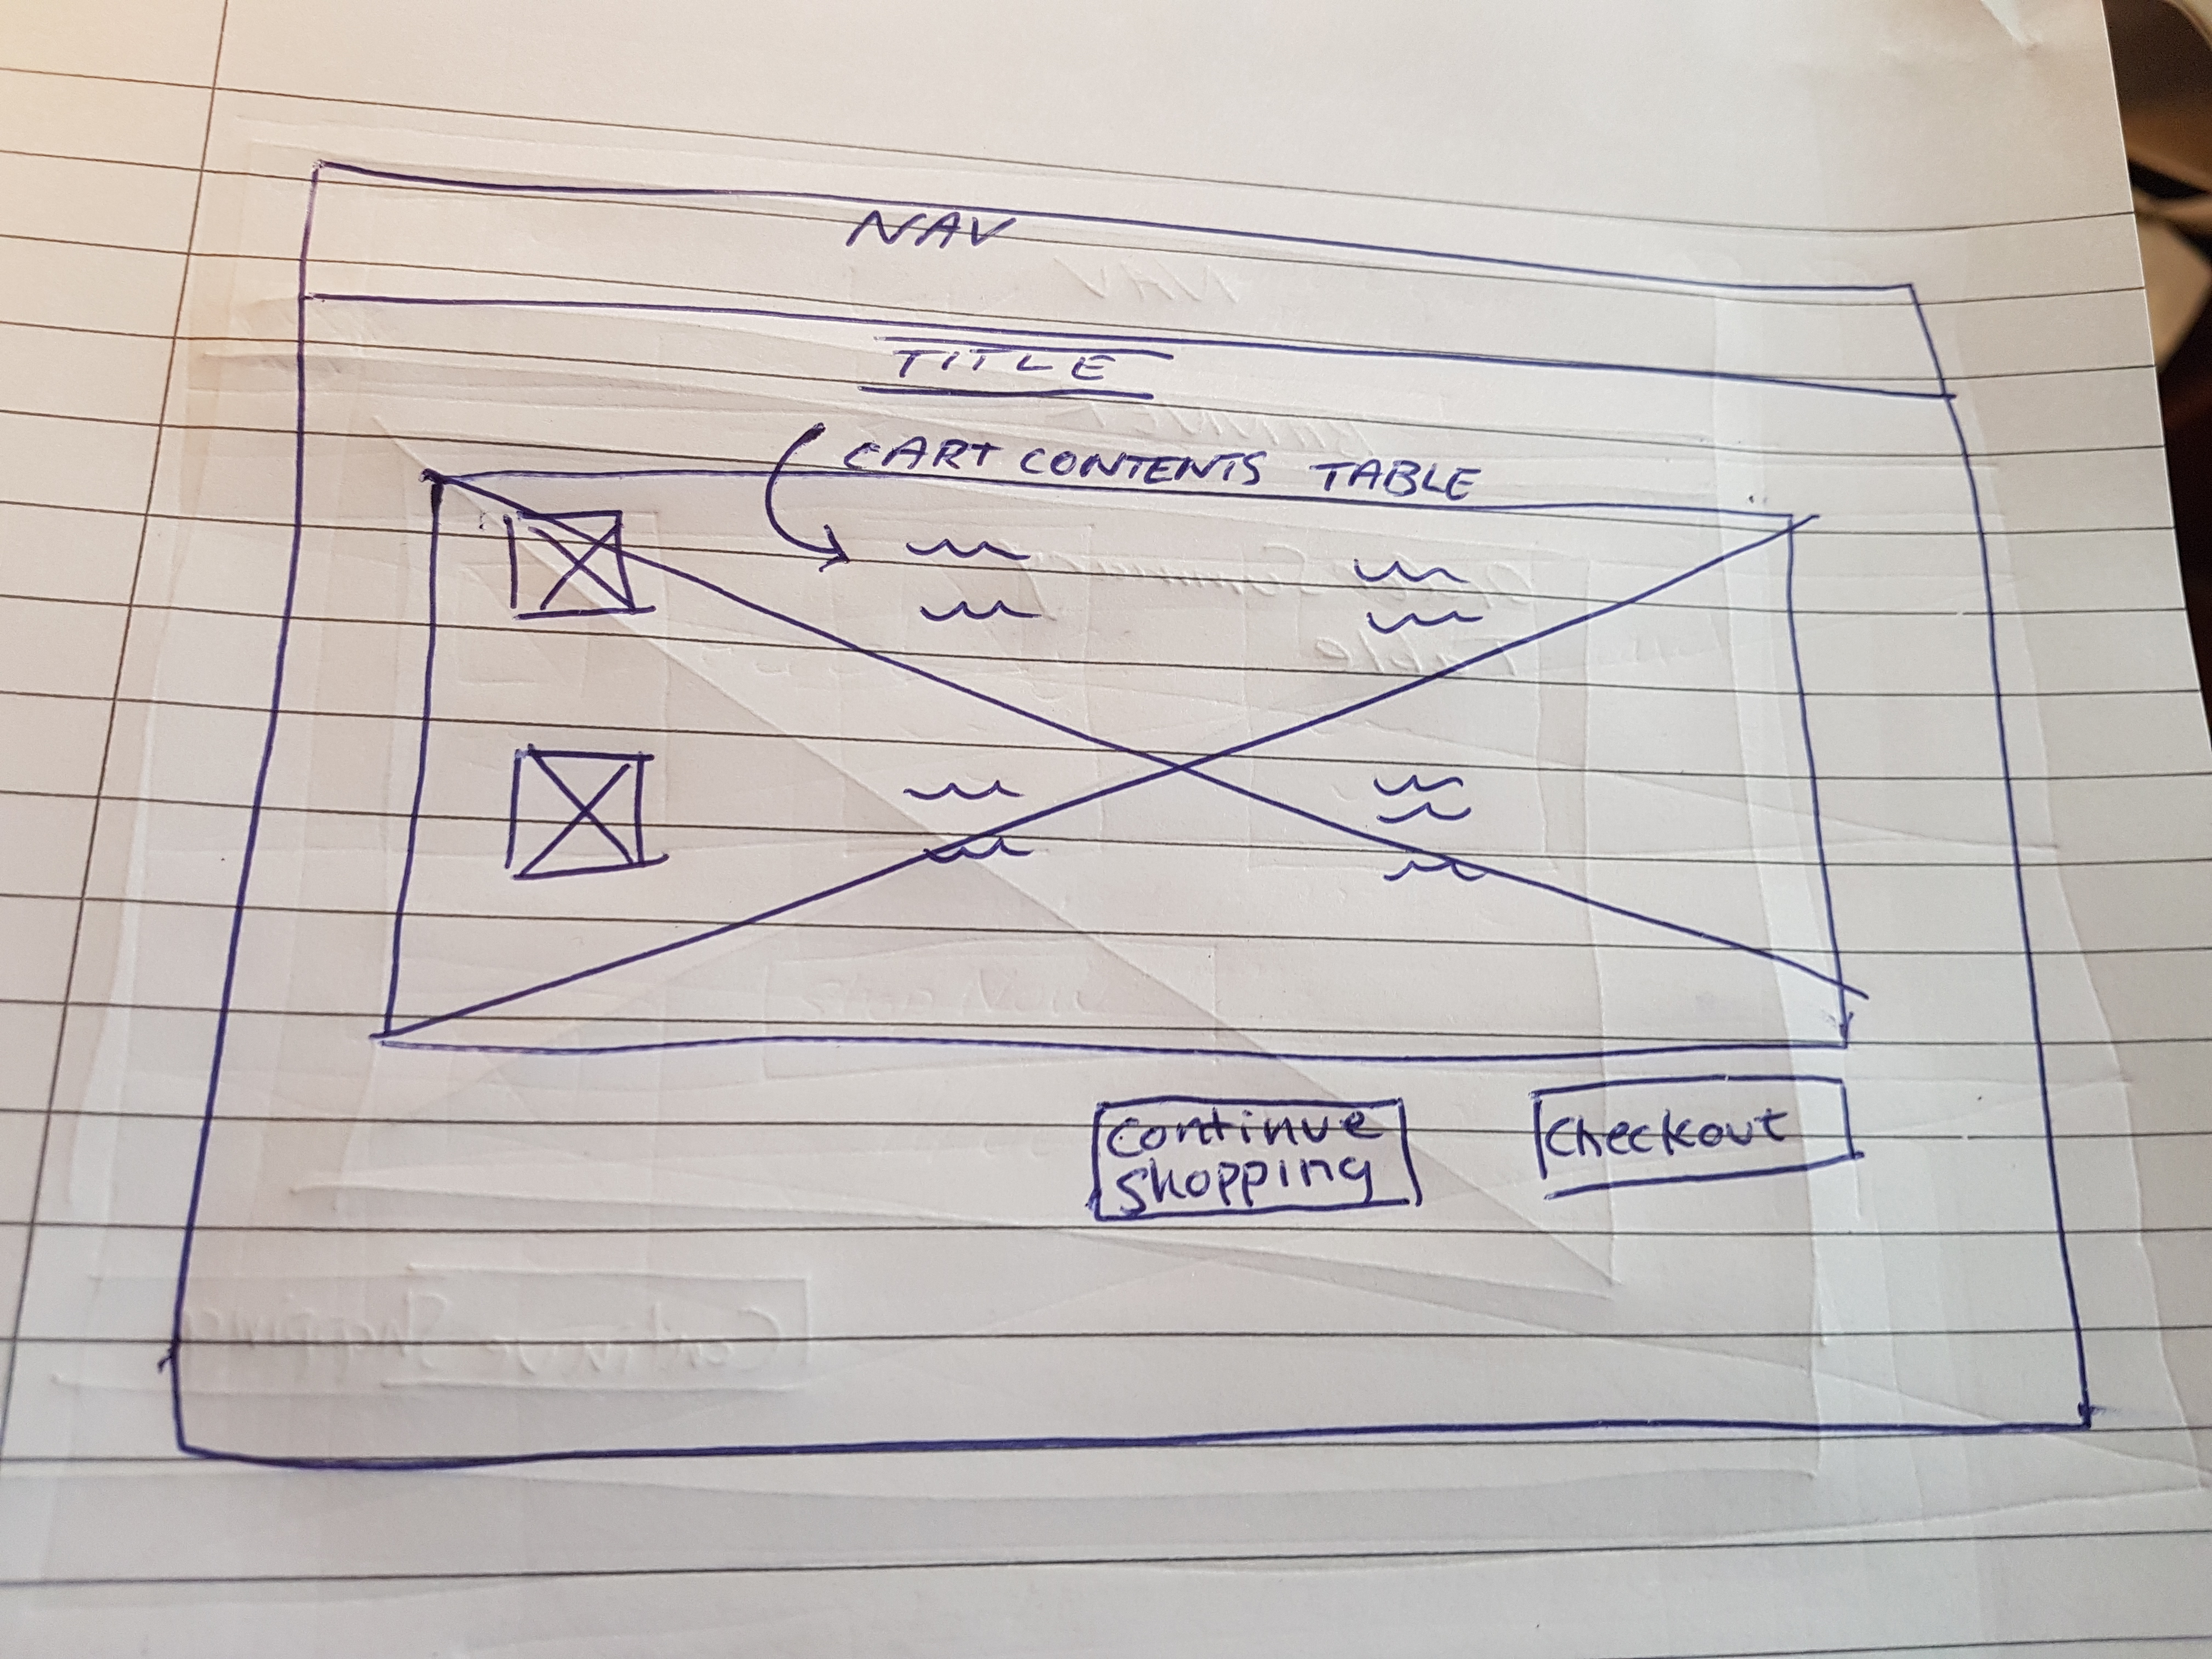 NAV
TITLE
CART CONTENTS TABLE
Continue
Shopping
Checkout